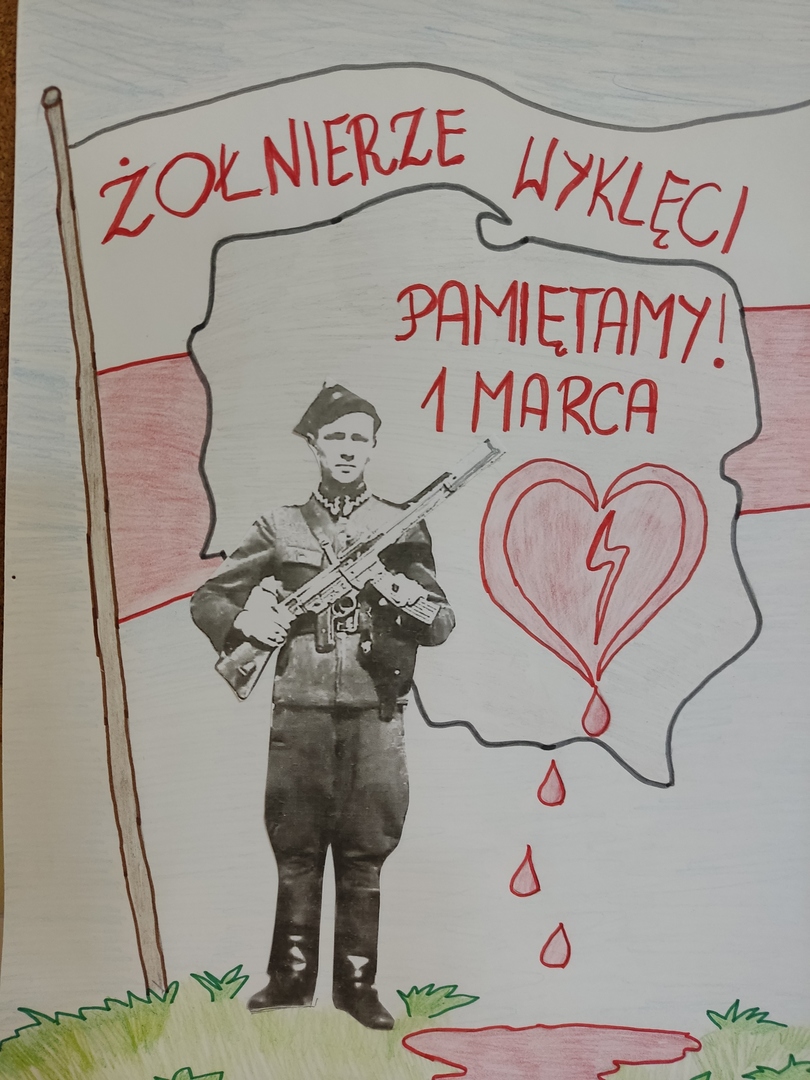 ŻOŁNIERZE WYKLĘCI
PAMIĘTAMY!
1 MARCA